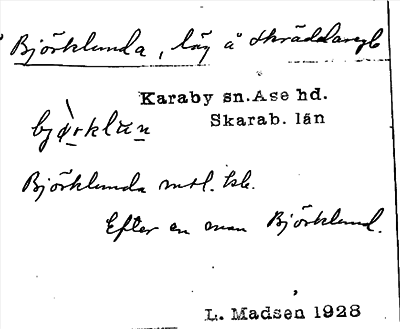 Björklunda, läg å Skräddaregb
Karaby sn. Åse hd.
Skarab. län
bjö̀rklun
Björklunda mtl. tsk.
Efter en man Björklund.
L. Madsen 1928